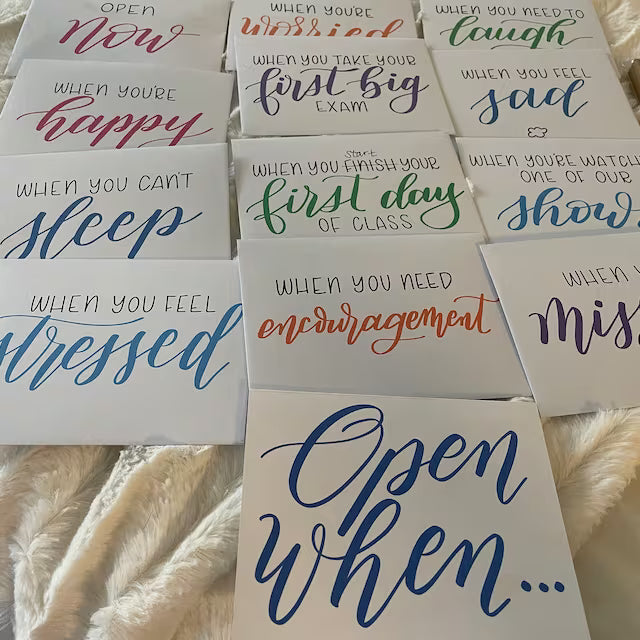 OPEN
now
WHEN YOU'RE
worried
WHEN YOU NEED TO
laugh
WHEN YOU'RE
happy
WHEN YOU TAKE YOUR
first big
EXAM
WHEN YOU FEEL
sad
WHEN YOU CAN'T
sleep
start
WHEN YOU FINISH YOUR
first day
OF CLASS
WHEN YOU'RE WATCH
ONE OF OUR
show
WHEN YOU FEEL
stressed
WHEN YOU NEED
encouragement
WHEN Y
mis
Open
when...